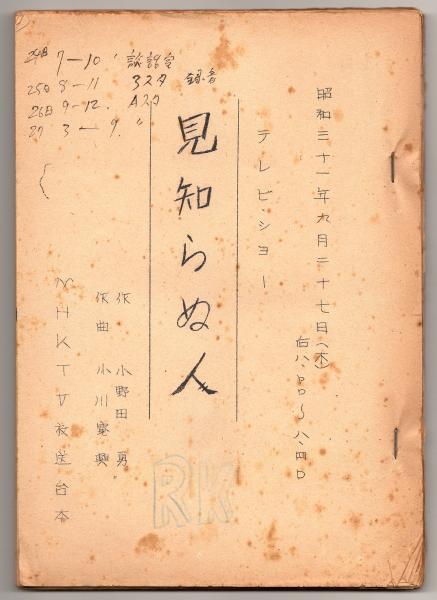 24日 7-10
25日 8-11 3スタ 録音
26日 9-12. Aスタ
27 3-9. 〃
昭和三十一年九月二十七日(木)
后八、〇〇〜八、四〇
テレビ・ショー
見知らぬ人
作 小野田 勇
作曲 小川寛興
NHKTV放送台本
RK